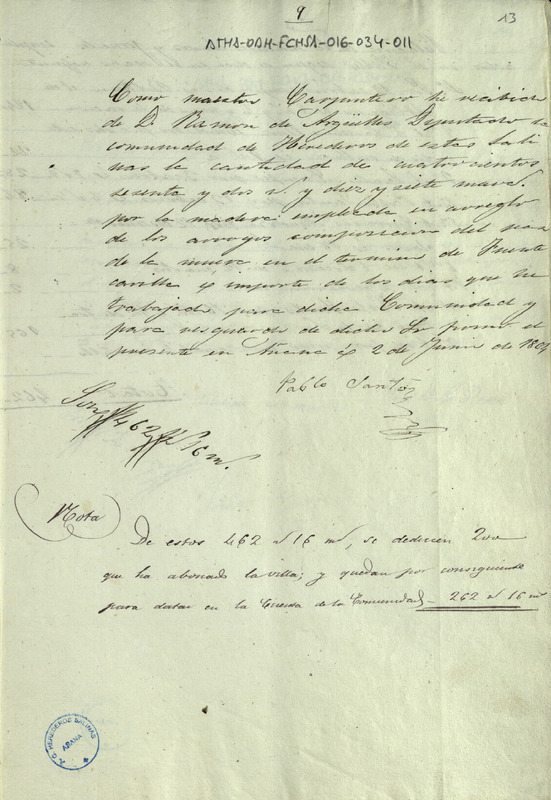 9
13
ATHA-DAH-FCHSA-016-034-011
Como maestro Carpintero he recibido
de Dn Ramon de Argüelles Diputado la
comunidad de Herederos de estas Sali
nas la cantidad de cuatrocientos
sesenta y dos rs. y diez y siete marv.
por la madera empleada en arreglo
de los arroyos composicion del
de la nueva en el termino de Fuente
é importe de los dias que he
trabajado para dicha Comunidad y
para resguardo de dicho Sr firmo el
presente en Añana á 2 de Junio de
Pablo Santos
Son 462 rs 16 m.
Nota
De estos 462 rs 16 ms, se deducen 200
que ha abonado la villa; y quedan por consiguiente
para datar en la Cuenta de la Comunidad 262 rs 16 ms
C. HEREDEROS SALINAS
AÑANA